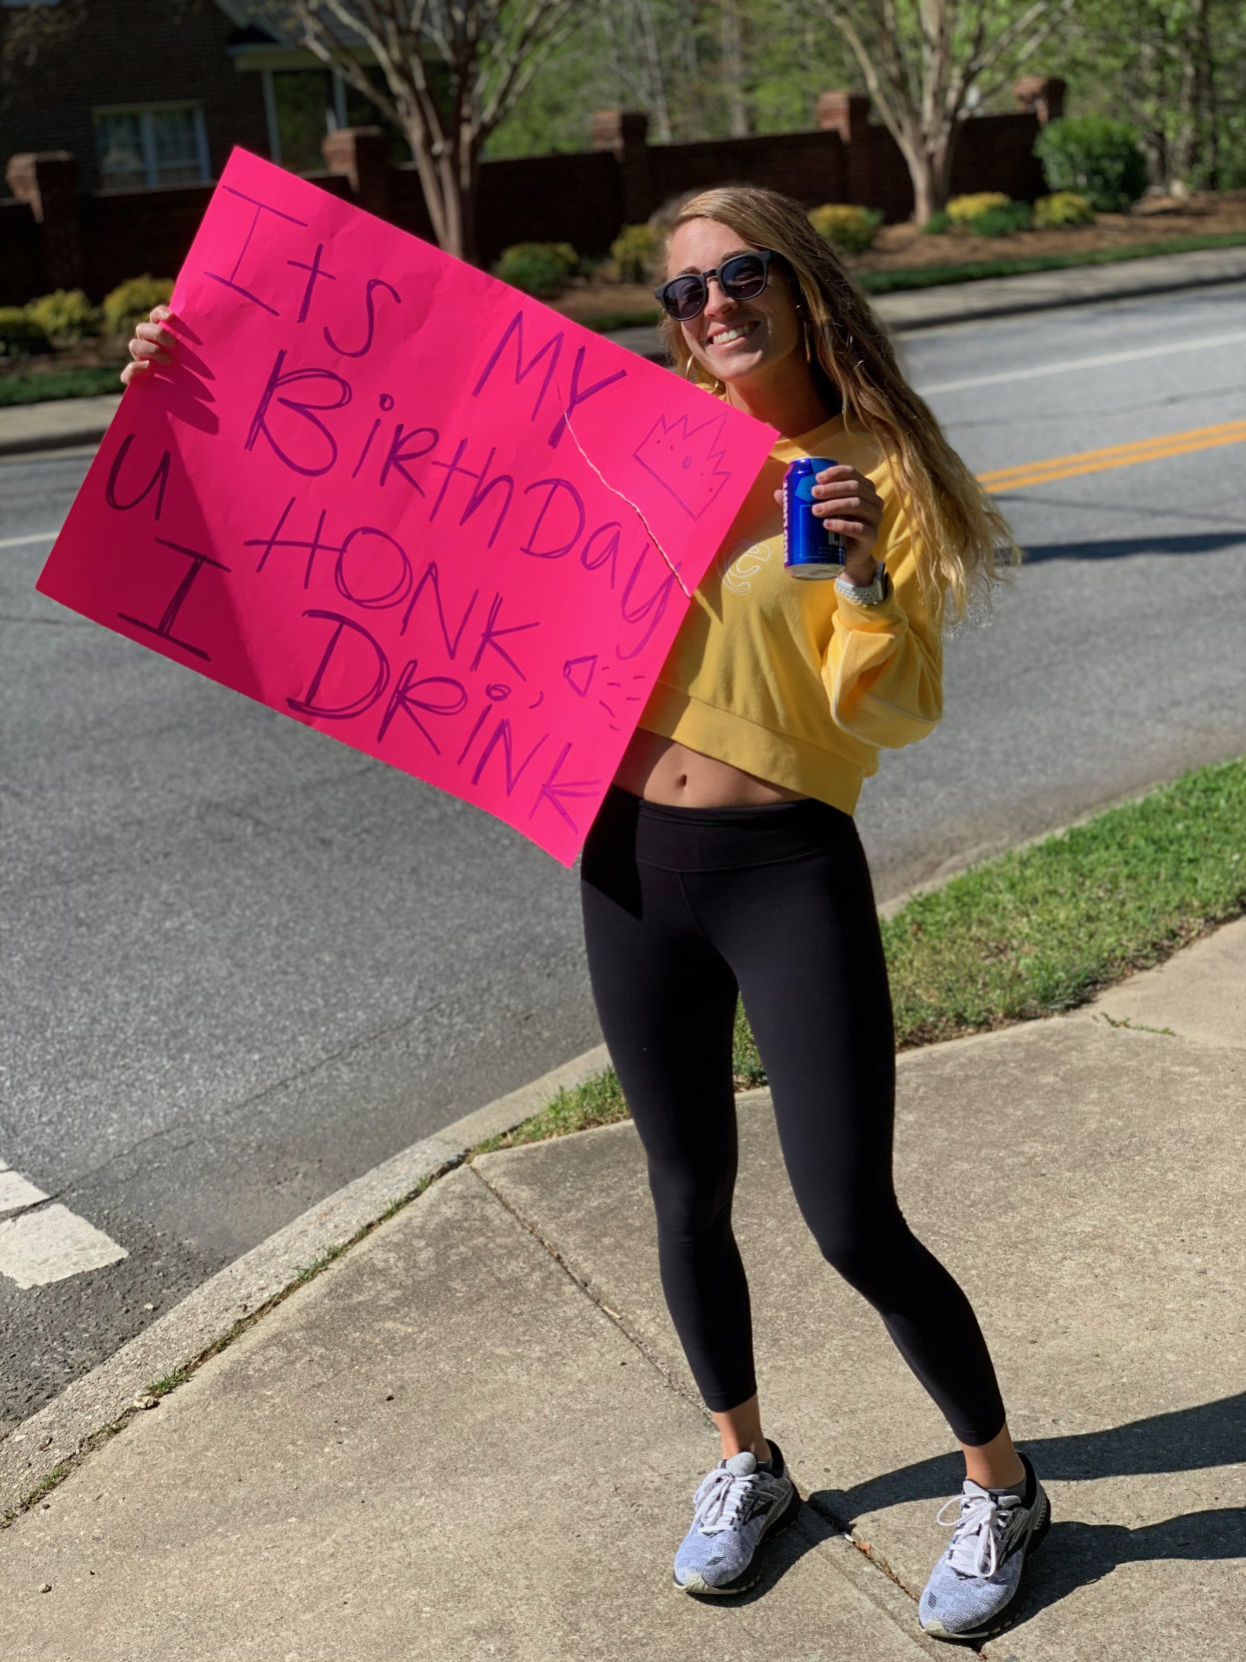 Its MY
BiRthDay
u HONK,
I DRiNK